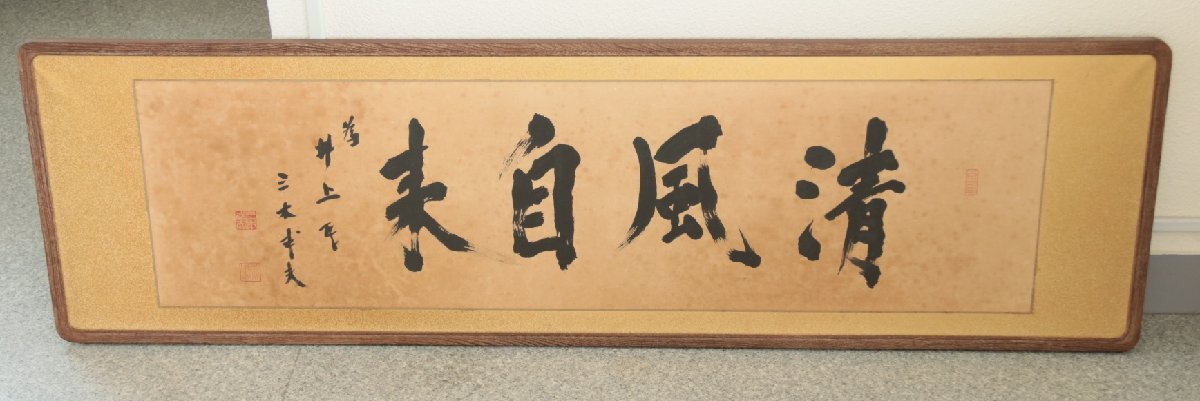 清風自来
為井上氏
三木武夫